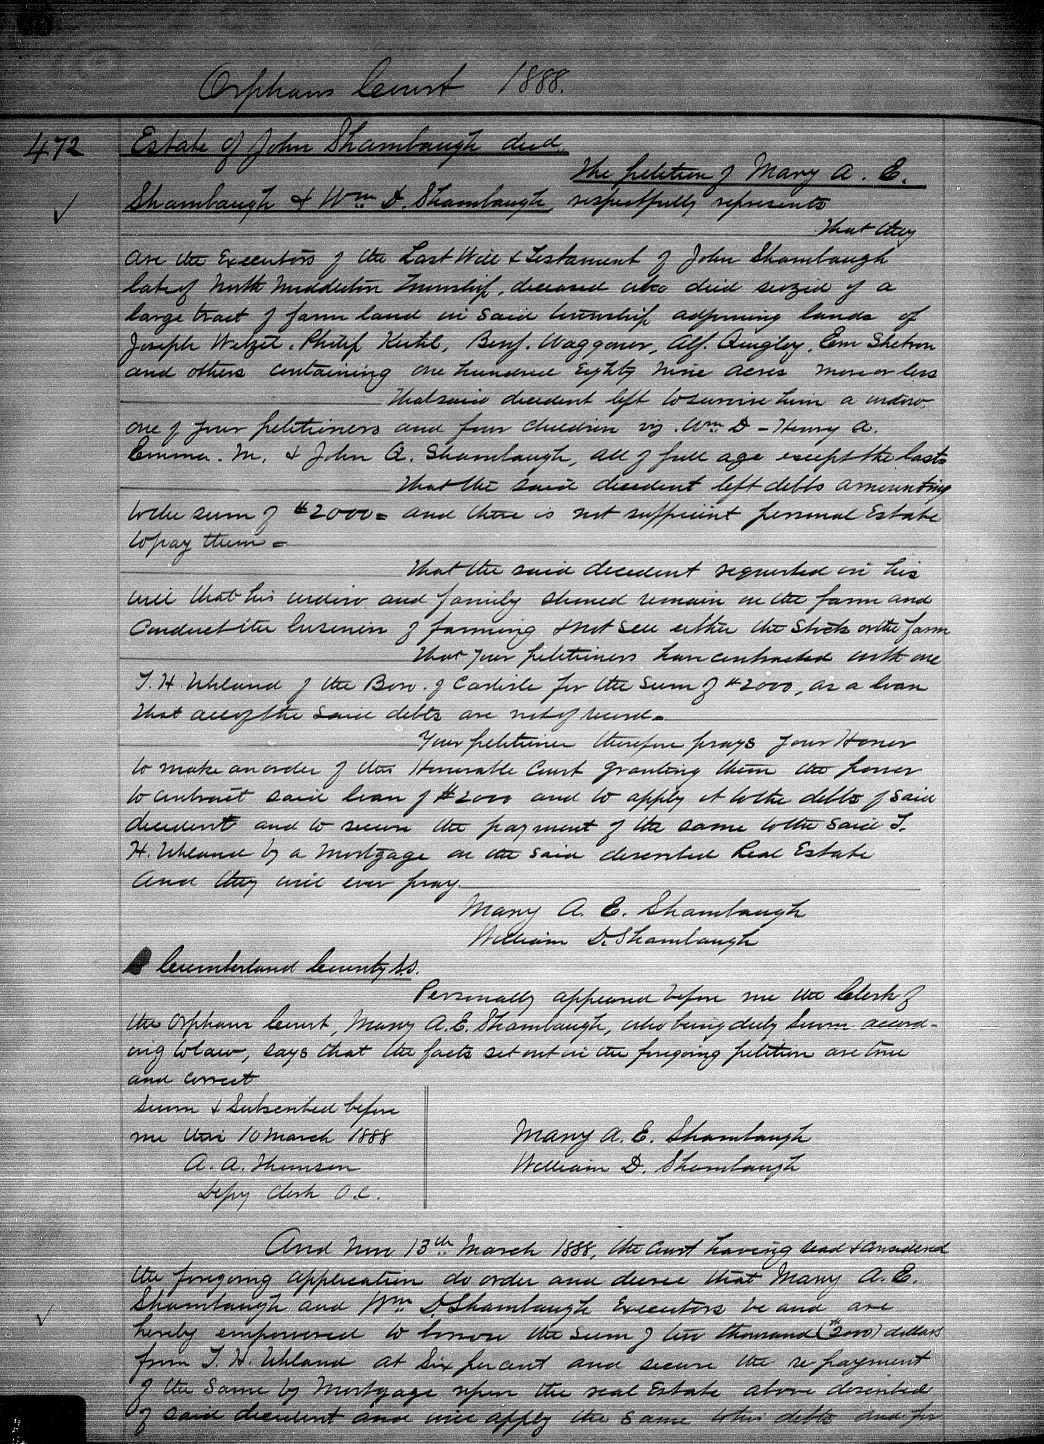 Orphans Court 1888.
472
Estate of John Shambaugh decd.
The petition of Mary A. E.
Shambaugh & Wm D. Shambaugh respectfully represents
That they
are the Executors of the Last Will & Testament of John Shambaugh
late of North Middleton Township, deceased who died seized of a
large tract of farm land in said township adjoining lands of
Joseph Wetzel, Philip Kuhl, Benj. Waggoner, Alf. Quigley, Em Shetron
and others containing one hundred Eighty Nine acres more or less
That said decedent left to survive him a widow,
one of your petitioners and four children viz. Wm D - Henry A.
Emma. M. & John A. Shambaugh, all of full age except the last
That the said decedent left debts amounting
to the sum of $2000= and there is not sufficient personal Estate
to pay them =
That the said decedent requested in his
will that his widow and family should remain on the farm and
Conduct the business of farming & not sell either the Stock or the farm
That your petitioners have contracted with one
T. H Uhland of the Boro. of Carlisle for the sum of $2000, as a loan
That all of the said debts are not of record.
Your petitioner therefore prays your Honor
to make an order of this Honorable Court granting them the power
to contract said loan of $2000 and to apply it to the debts of said
decedent and to secure the payment of the same to the said T.
H. Uhland by a Mortgage on the said described Real Estate
And they will ever pray
Mary A. E. Shambaugh
William D. Shambaugh
Cumberland County ss.
Personally appeared before me the Clerk of
the Orphans Court, Mary A. E. Shambaugh, who being duly sworn accord-
ing to law, says that the facts set out in the foregoing petition are true
and correct
Sworn & Subscribed before
me this 10 March 1888
A. A. Thomson
Depy Clerk O.C.
Mary A. E. Shambaugh
William D. Shambaugh
And Now 13th March 1888, the Court having read & considered
the foregoing application do order and decree that Mary A. E.
Shambaugh and Wm D. Shambaugh Executors be and are
hereby empowered to borrow the sum of two thousand ($2000) dollars
from T. H. Uhland at Six per cent and secure the re payment
of the same by Mortgage upon the real Estate above described
of said decedent and will apply the same to his debts and for